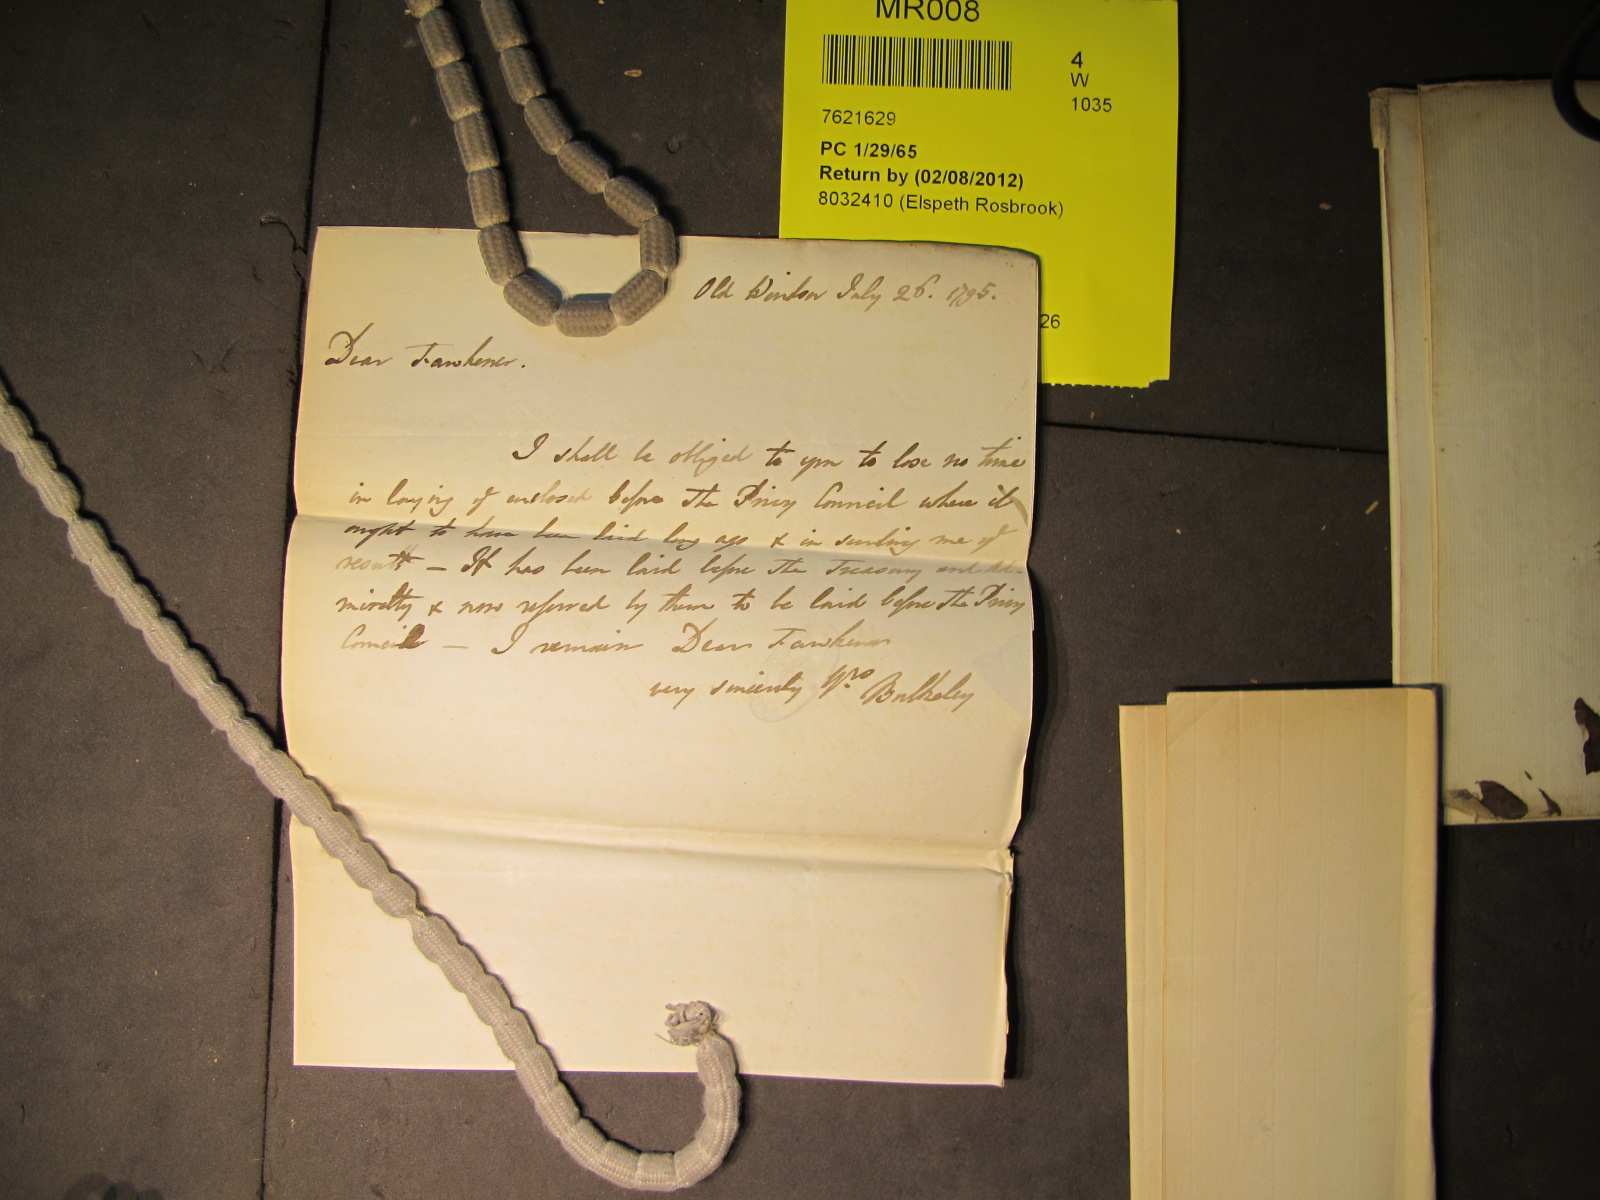 MR008
4
W
1035
7621629
PC 1/29/65
Return by (02/08/2012)
8032410 (Elspeth Rosbrook)
26
Old Windsor July 26. 1795.
Dear Fawkener.
I shall be obliged to you to lose no time
in laying ye enclosed before the Privy Council where it
ought to have been laid long ago & in sending me ye
result — It has been laid before the Treasury and Ad-
miralty & now referred by them to be laid before the Privy
Council — I remain Dear Fawkener
very sincerely Yrs Bulkeley